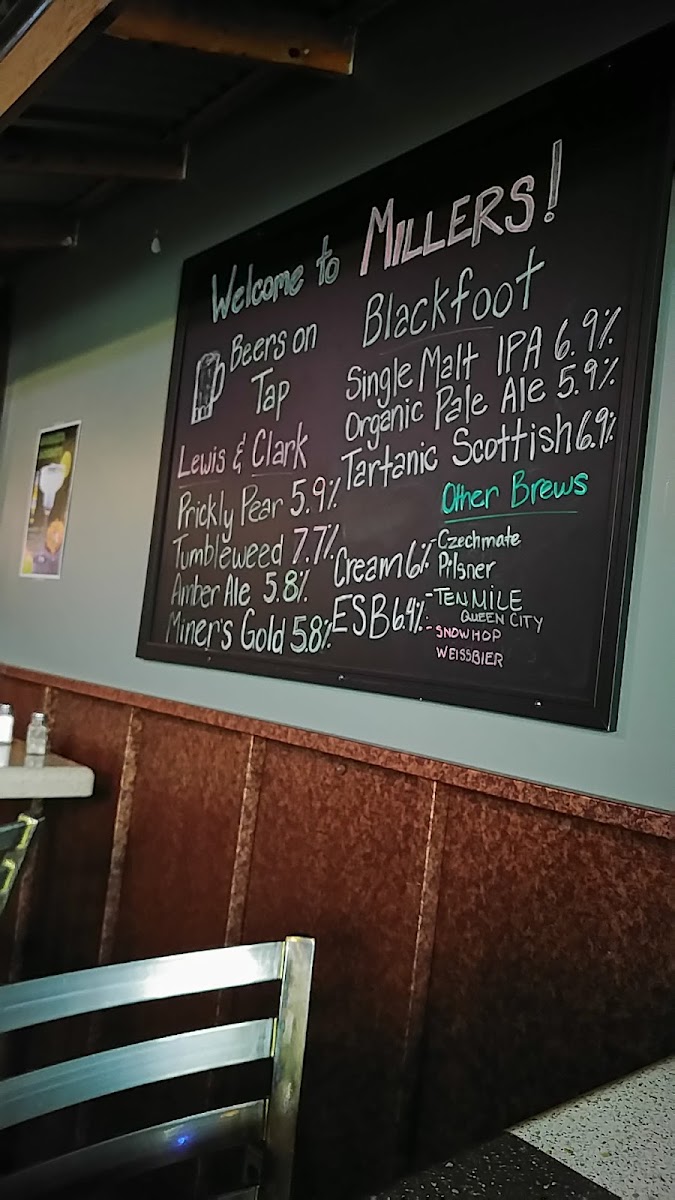 Welcome to MILLERS!
Beers on
Tap
Lewis & Clark
Prickly Pear 5.9%
Tumbleweed 7.7%
Amber Ale 5.8%
Miner's Gold 5.8%
Cream 6%
ESB 6.4%
Blackfoot
Single Malt IPA 6.9%
Organic Pale Ale 5.9%
Tartanic Scottish 6.9%
Other Brews
-Czechmate
Pilsner
-TEN MILE
QUEEN CITY
-SNOW HOP
WEISSBIER